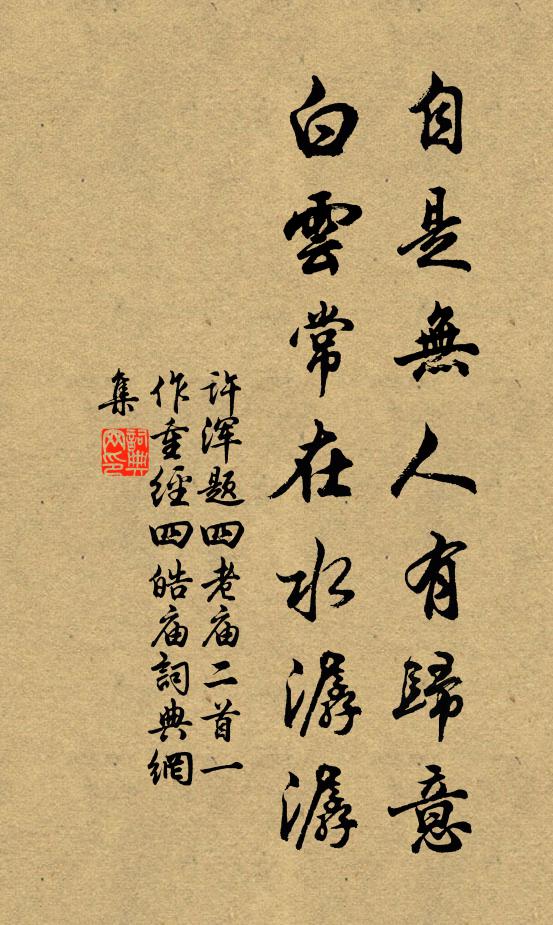 自是無人有歸意
白雲常在水潺潺
许浑题四老庙二首一
作重經四皓庙詞典網
集
詞典
网印